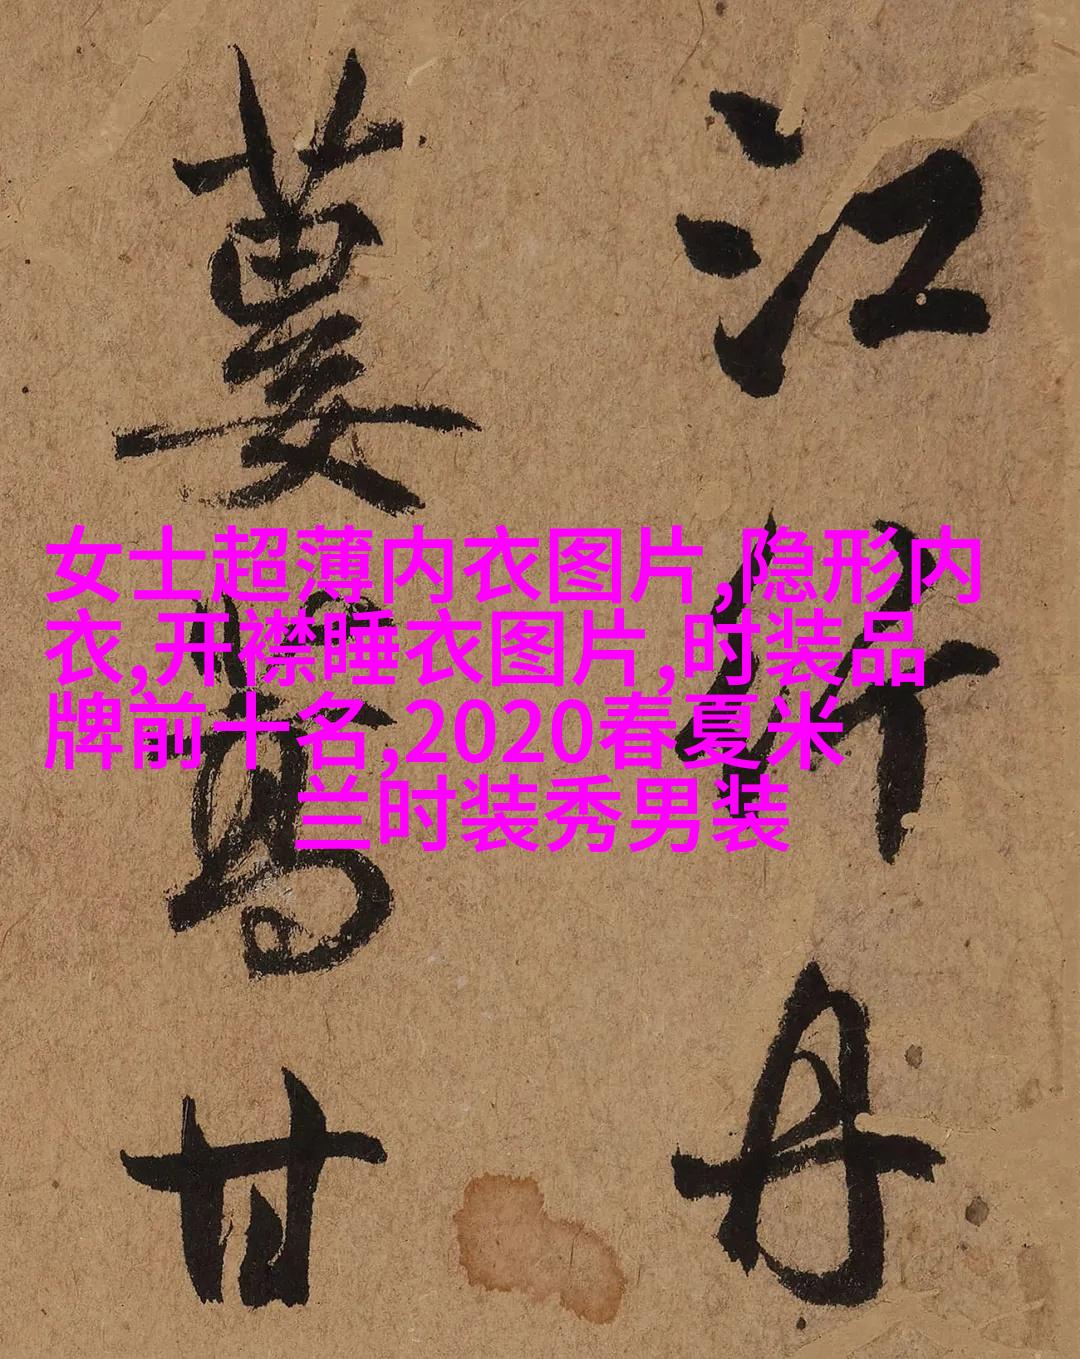 江行丹
蔞蒿甘
女士超薄内衣图片,隐形内
衣,开襟睡衣图片,时装品
牌前十名,2020春夏米
兰时装秀男装